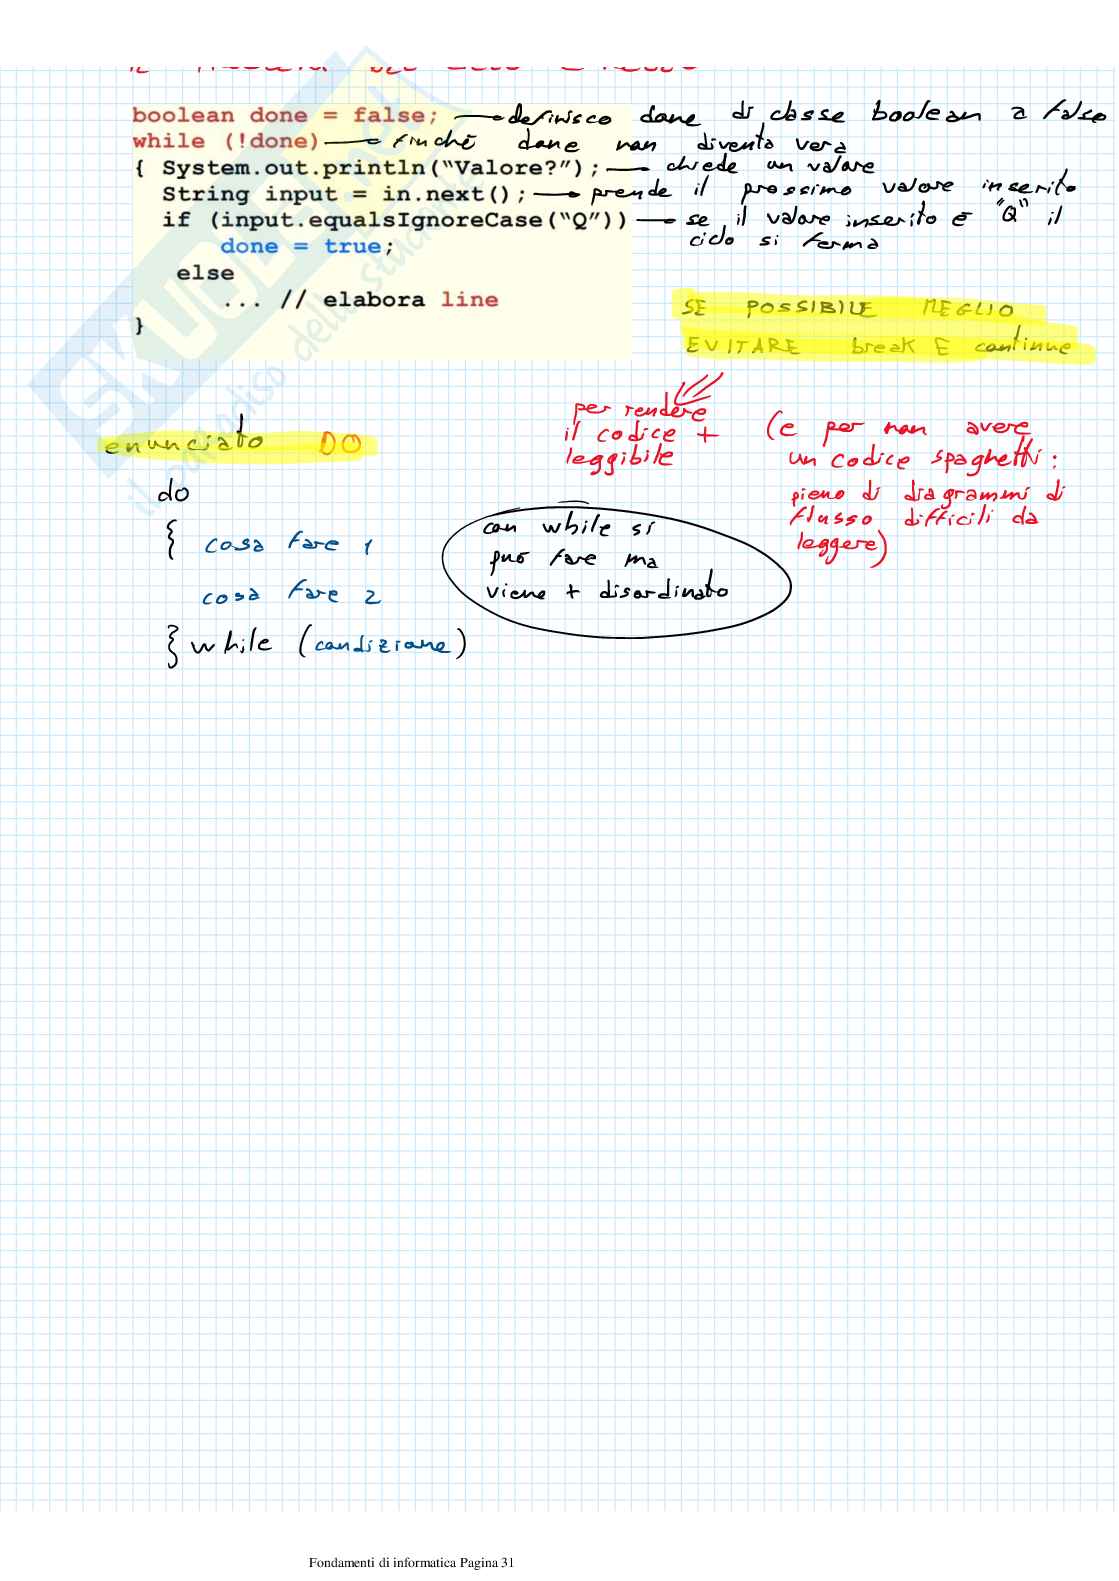 boolean done = false; definisco done di classe boolean a falso
while (!done) finché done non diventa vera
{ System.out.println(“Valore?”); chiede un valore
String input = in.next(); prende il prossimo valore inserito
if (input.equalsIgnoreCase(“Q”)) se il valore inserito è "Q" il
ciclo si ferma
done = true;
else
... // elabora line
}
SE POSSIBILE MEGLIO
EVITARE break E continue
per rendere
il codice +
leggibile
(e per non avere
un codice spaghetti:
pieno di diagrammi di
flusso difficili da
leggere)
enunciato DO
do
{ cosa fare 1
cosa fare 2
} while (condizione)
con while si
può fare ma
viene + disordinato
SKUOLA.net
il paradiso dello studente
Fondamenti di informatica Pagina 31